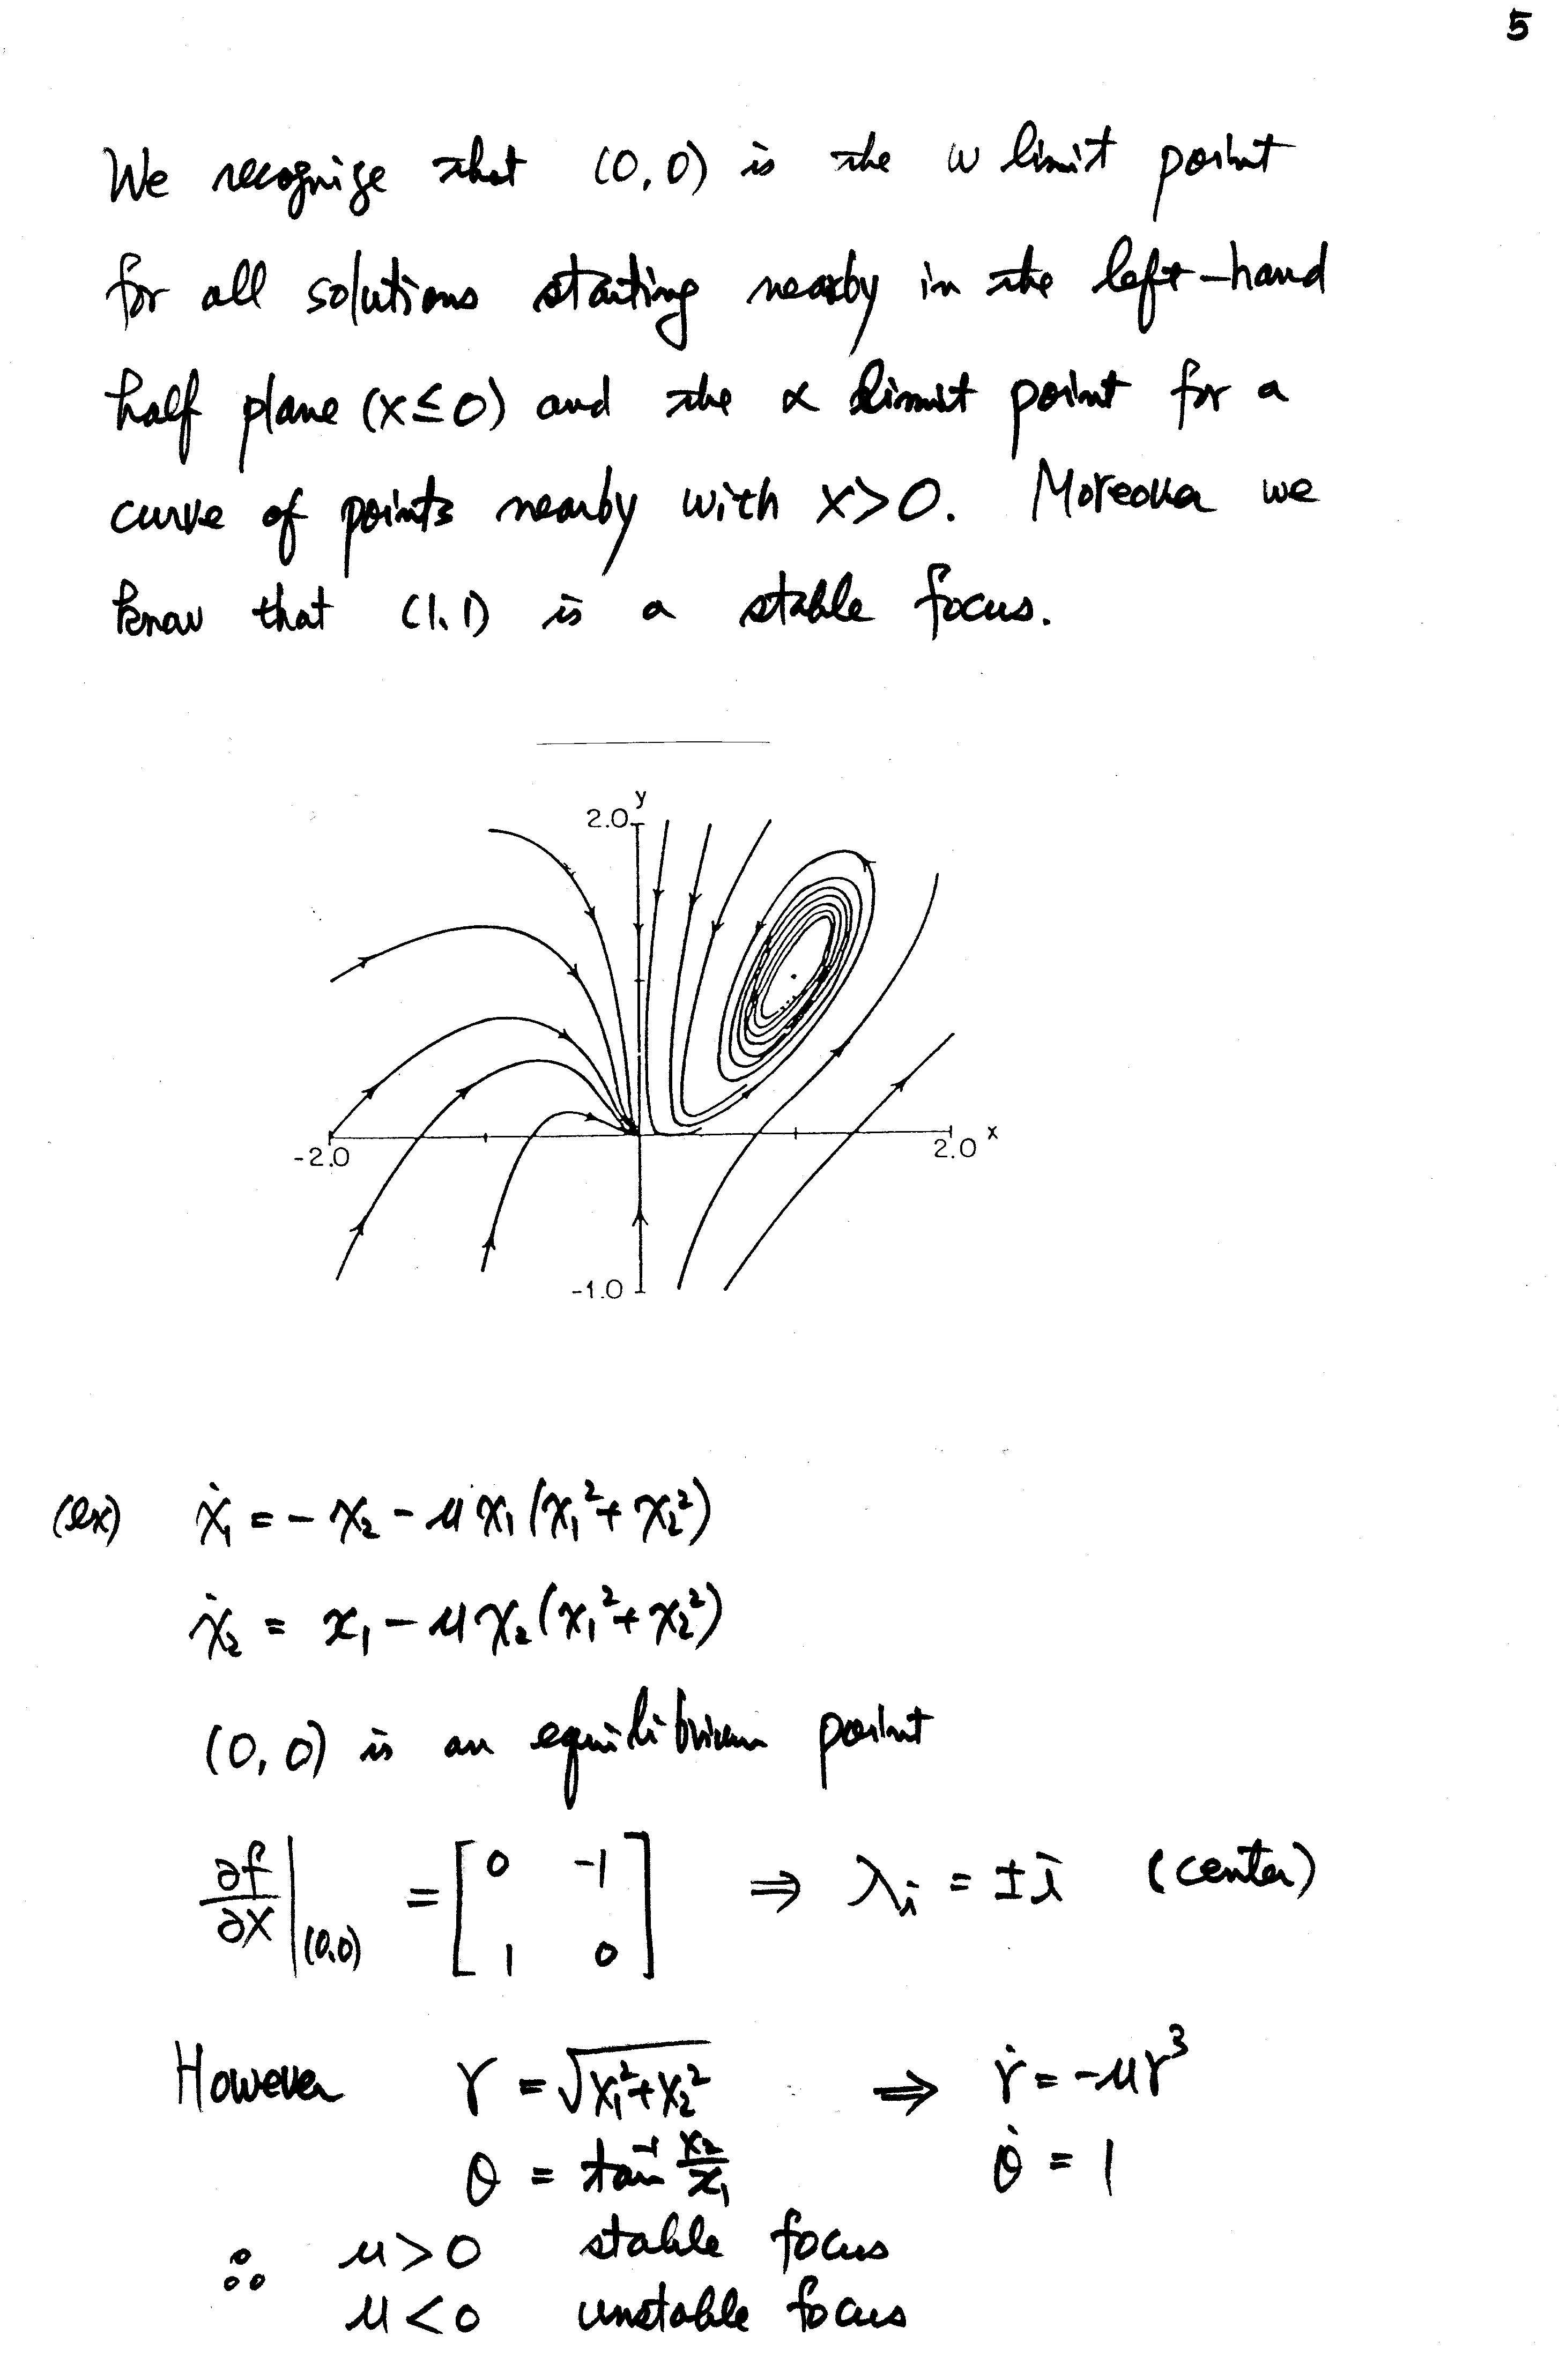 5
We recognize that (0,0) is the ω limit point
for all solutions starting nearby in the left-hand
half plane (x≤0) and the α limit point for a
curve of points nearby with x>0. Moreover we
know that (1,1) is a stable focus.
y
2.0
-2.0
2.0 x
-1.0
(ex) ẋ₁ = - x₂ - μ x₁ (x₁² + x₂²)
ẋ₂ = x₁ - μ x₂ (x₁² + x₂²)
(0,0) is an equilibrium point
∂f/∂x |(0,0) = [0 -1; 1 0] ⇒ λᵢ = ±i (center)
However r = √(x₁² + x₂²) ⇒ ṙ = -μr³
θ = tan⁻¹ x₂/x₁ θ̇ = 1
∴ μ>0 stable focus
μ<0 unstable focus